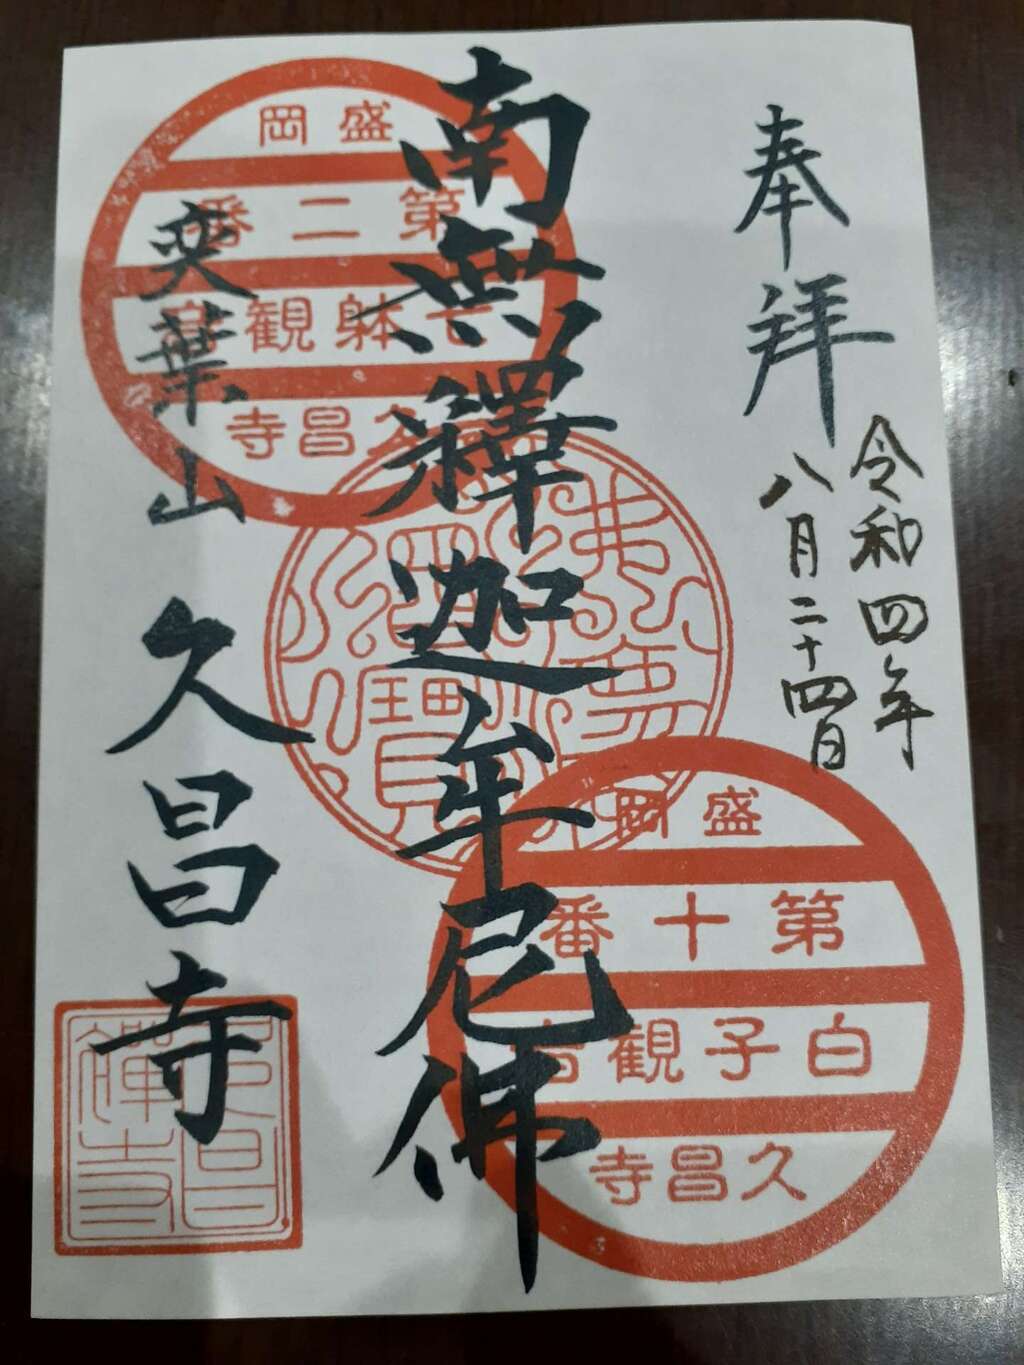 奉拜
令和四年
八月二十四日
南無釋迦牟尼佛
奕葉山 久昌寺
盛岡
第二番
七躰観音
久昌寺
佛
寶
盛岡
第十番
白子観音
久昌寺
久昌
禅寺